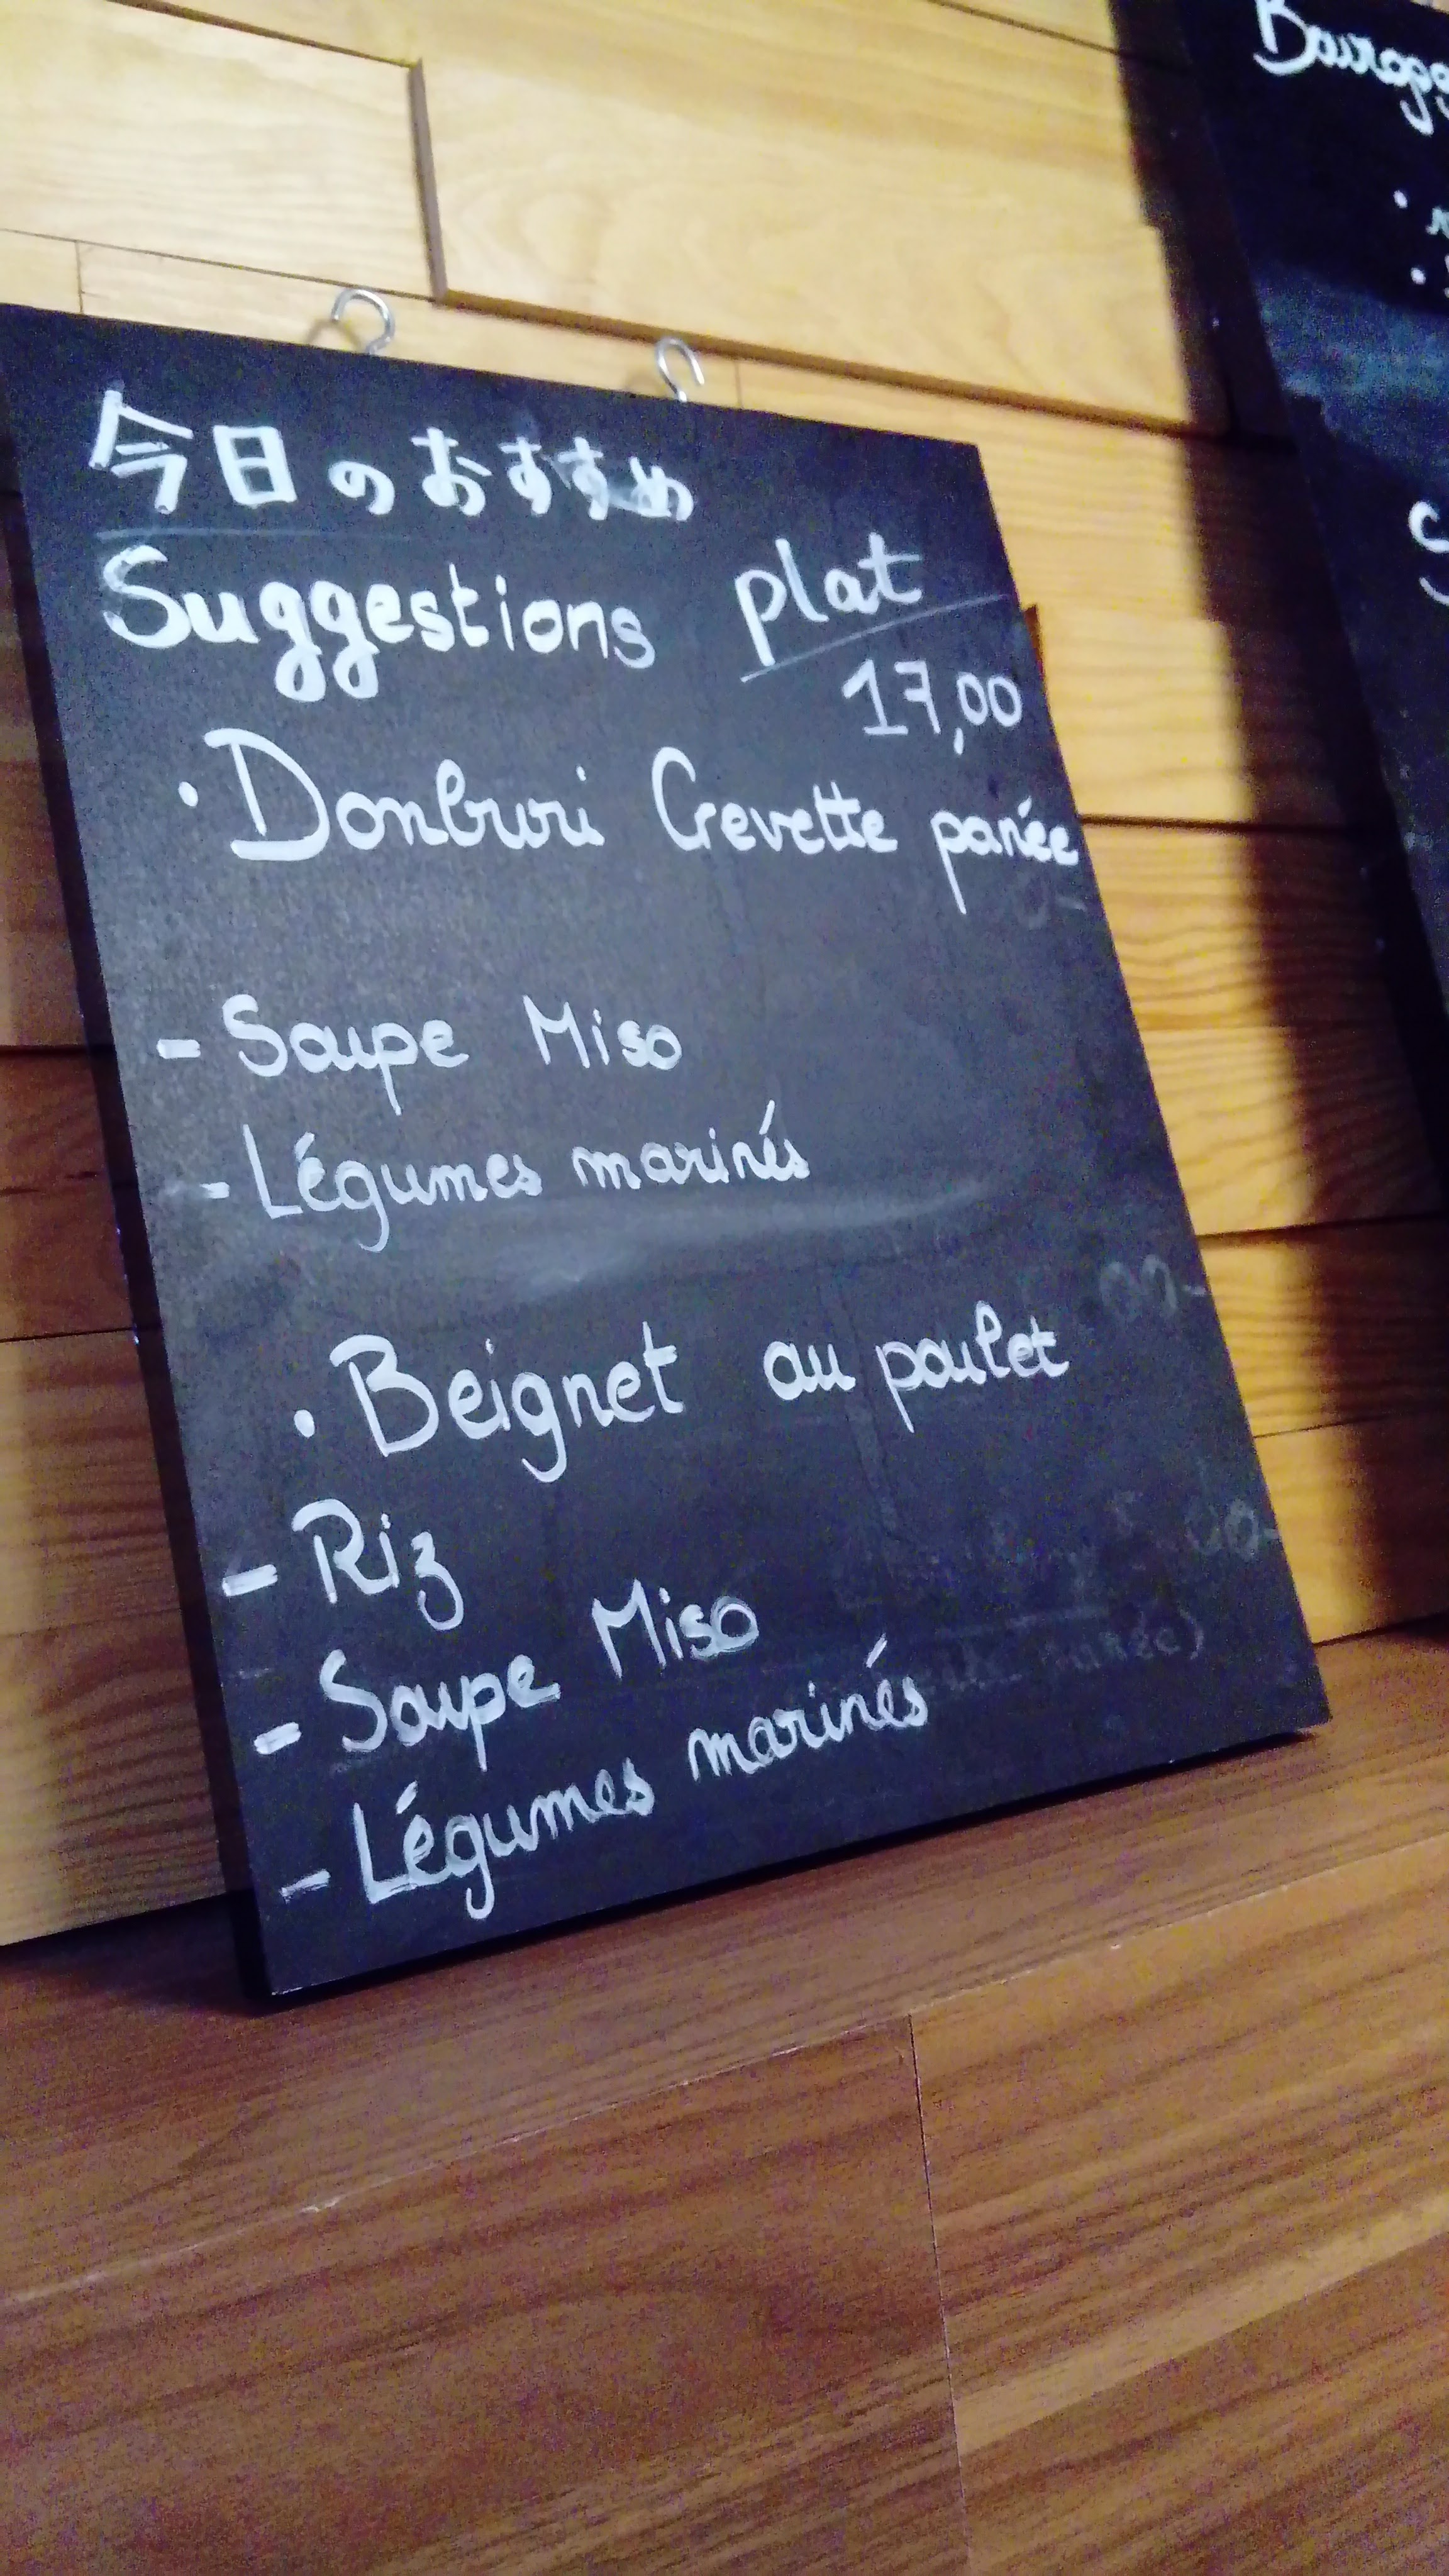 今日のおすすめ
Suggestions plat
17,00
• Donburi Crevette panée
- Soupe Miso
- Légumes marinés
• Beignet au poulet
- Riz
- Soupe Miso
- Légumes marinés